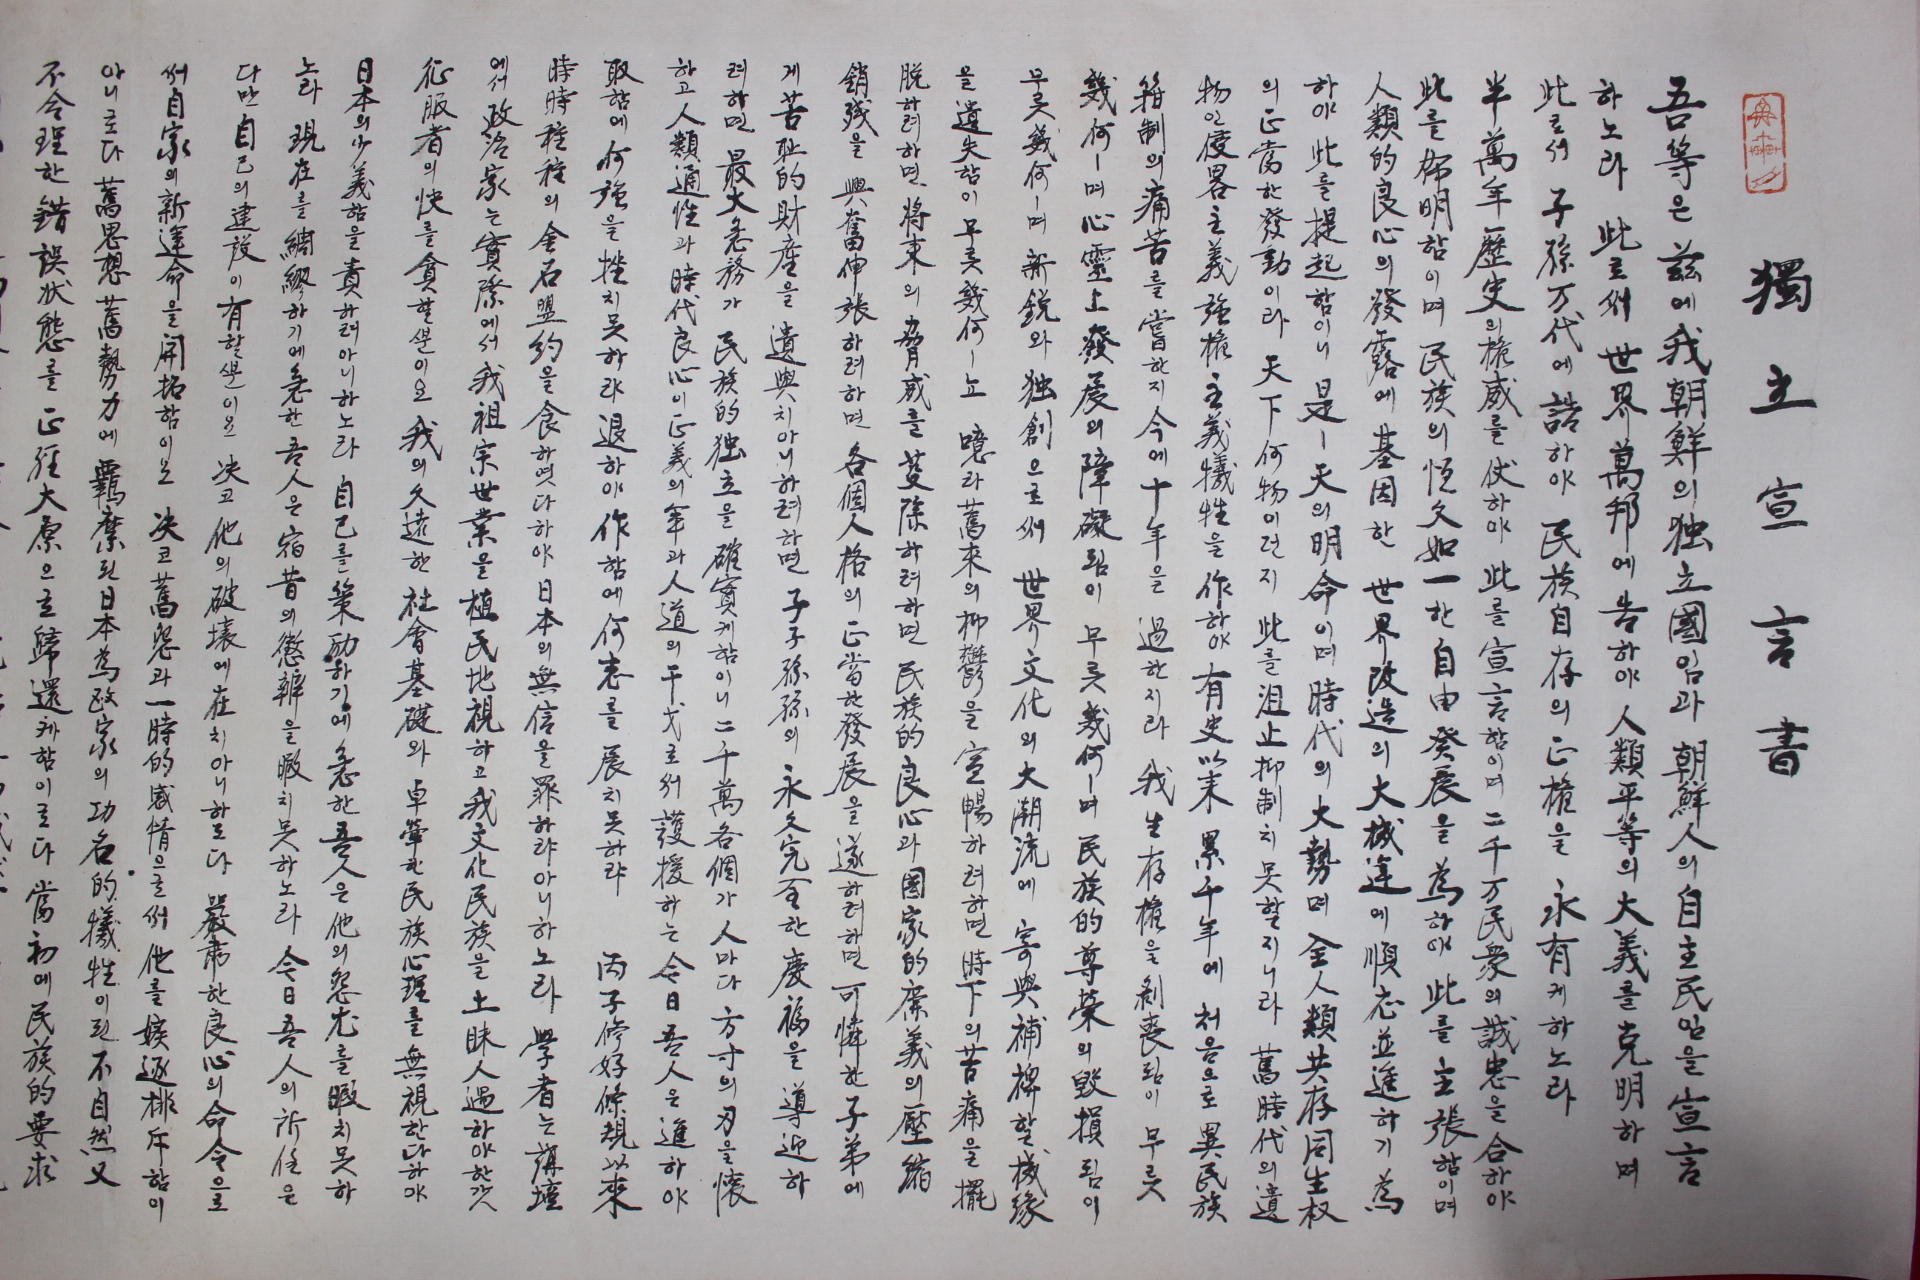 獨立宣言書
吾等은 茲에 我朝鮮의 独立國임과 朝鮮人의 自主民임을 宣言
하노라 此로써 世界萬邦에 告하야 人類平等의 大義를 克明하며
此로써 子孫万代에 誥하야 民族自存의 正權을 永有케하노라
半萬年歷史의 権威를 仗하야 此를 宣言함이며 二千万民衆의 誠忠을 合하야
此를 佈明함이며 民族의 恒久如一한 自由發展을 為하야 此를 主張함이며
人類的良心의 發露에 基因한 世界改造의 大機運에 順応並進하기 為
하야 此를 提起함이니 是ㅣ 天의 明命이며 時代의 大勢며 全人類共存同生权
의 正當한 發動이라 天下何物이던지 此를 沮止抑制치못할지니라 舊時代의 遺
物인 侵畧主義強権主義犧牲을 作하야 有史以来 累千年에 처음으로 異民族
箝制의 痛苦를 嘗한지 今에 十年을 過한지라 我生存権을 剝喪됨이 무릇
幾何ㅣ며 心靈上發展의 障礙됨이 무릇 幾何ㅣ며 民族的尊栄의 毁損됨이
무릇 幾何ㅣ며 新鋭와 独創으로써 世界文化의 大潮流에 寄與補裨할 機縁
을 遺失함이 무릇 幾何ㅣ뇨 噫라 舊來의 抑鬱을 宣暢하려하면 時下의 苦痛을 擺
脱하려하면 將来의 脅威를 芟除하려하면 民族的良心과 國家的廉義의 壓縮
銷残을 興奮伸張하려하면 各個人格의 正當한 發展을 遂하려하면 可憐한 子弟에
게 苦恥的財産을 遺與치아니하려하면 子子孫孫의 永久完全한 慶福을 導迎하
려하면 最大急務가 民族的独立을 確實케함이니 二千萬各個가 人마다 方寸의 刃을 懐
하고 人類通性과 時代良心이 正義의 軍과 人道의 干戈로써 護援하는 今日 吾人은 進하야
取함에 何強을 挫치못하랴 退하야 作함에 何志를 展치못하랴 丙子修好條規以來
時時種種의 金石盟約을 食하엿다하야 日本의 無信을 罪하랴아니하노라 學者는 講壇
에서 政治家는 實際에서 我祖宗世業을 植民地視하고 我文化民族을 土昧人遇하야 한갓
征服者의 快를 貪할뿐이오 我의 久遠한 社會基礎와 卓犖한 民族心理를 無視한다하야
日本의 少義함을 責하려아니하노라 自己를 策励하기에 急한 吾人은 他의 怨尤를 暇치못하
노라 現在를 綢繆하기에 急한 吾人은 宿昔의 懲辨을 暇치못하노라 今日吾人의 所任은
다만 自己의 建設이 有할뿐이오 决코 他의 破壊에 在치아니하도다 嚴肅한 良心의 命令으로
써 自家의 新運命을 開拓함이오 决코 舊怨과 一時的感情으로써 他를 嫉逐排斥함이
아니로다 舊思想舊勢力에 羈縻된 日本為政家의 功名的犧牲이된 不自然又
不合理한 錯誤状態를 正經大原으로 歸還케함이로다 當初에 民族的要求